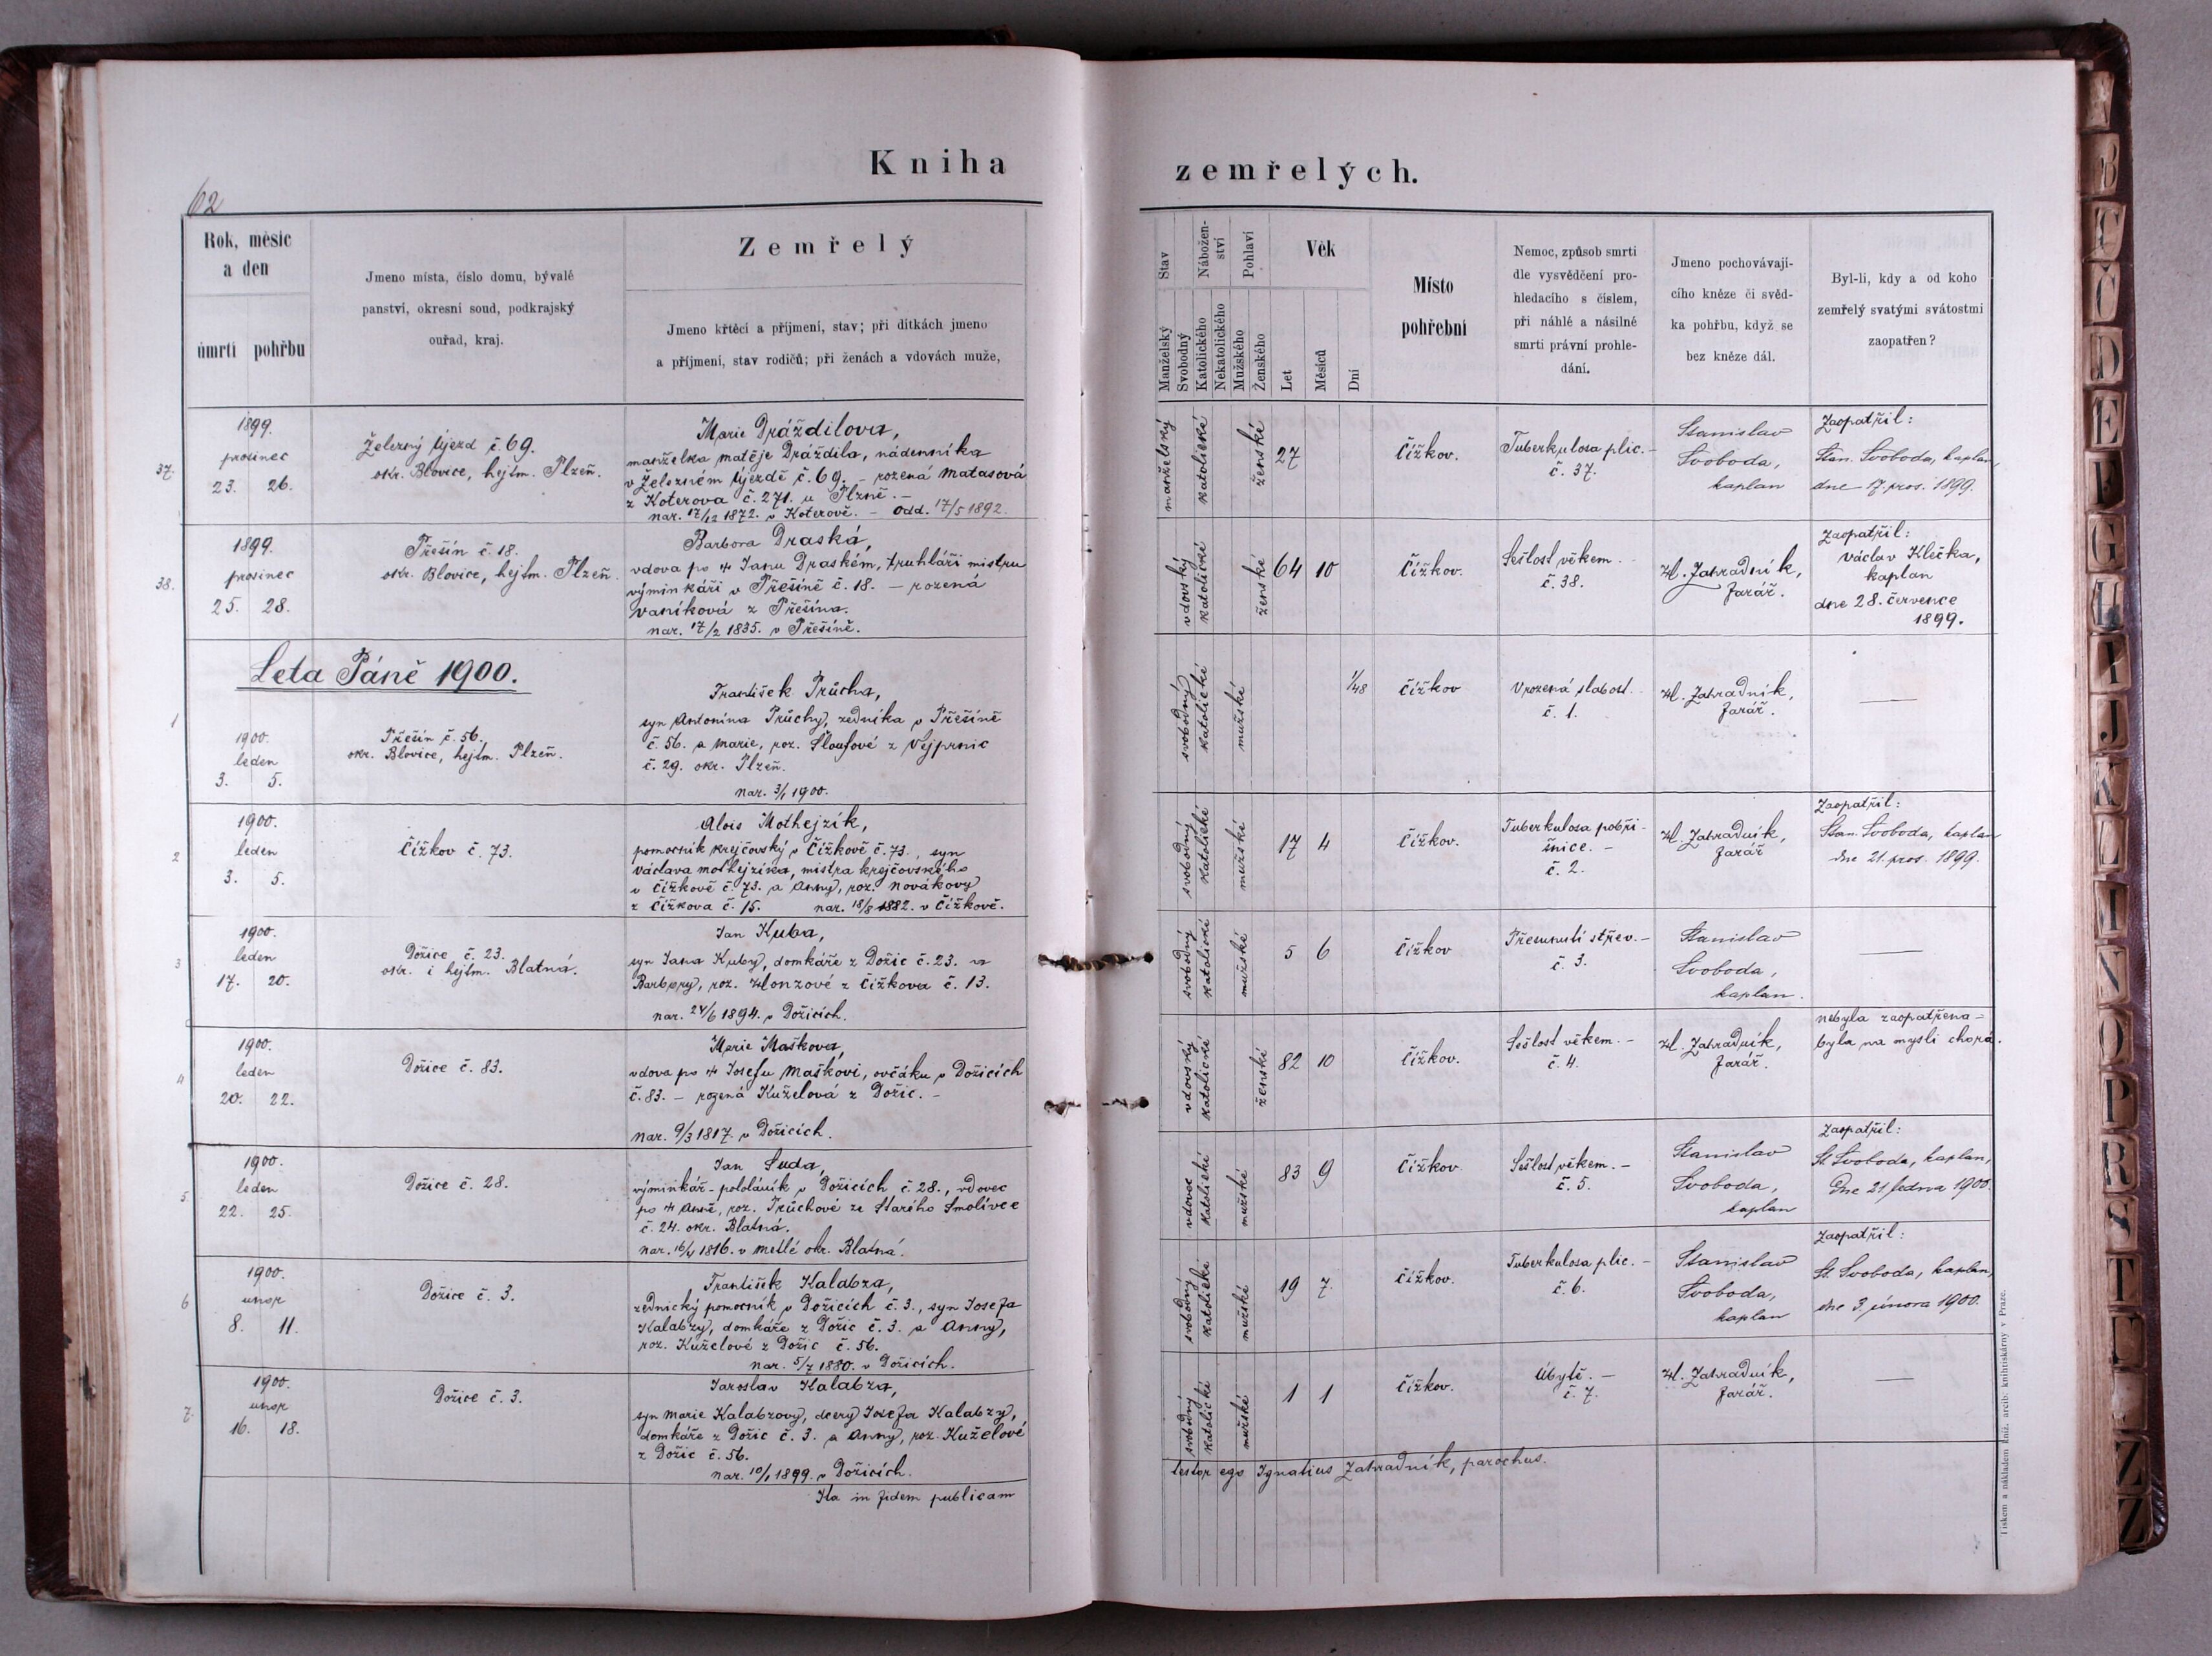 Kniha
zemřelých.
62
Rok, měsíc
a den
úmrtí pohřbu
Jmeno místa, číslo domu, bývalé
panství, okresní soud, podkrajský
ouřad, kraj.
Zemřelý
Jmeno křtěcí a příjmení, stav; při dítkách jmeno
a příjmení, stav rodičů; při ženách a vdovách muže,
Stav
Nábožen-
ství
Pohlaví
Věk
Manželský
Svobodný
Katolického
Nekatolického
Mužského
Ženského
Let
Měsíců
Dní
Místo
pohřební
Nemoc, způsob smrti
dle vysvědčení pro-
hledacího s číslem,
při náhlé a násilné
smrti právní prohle-
dání.
Jmeno pochovávají-
cího kněze či svěd-
ka pohřbu, když se
bez kněze dál.
Byl-li, kdy a od koho
zemřelý svatými svátostmi
zaopatřen?
37.
1899.
prosinec
23. 26.
Železný Újezd č. 69.
okr. Blovice, hejtm. Plzeň.
Marie Dráždilova,
manželka matěje Dráždila, nádenníka
v Železném Újezdě č. 69. – rozená Matasová
z Koterova č. 271. u Plzně. –
nar. 17/12 1872. v Koterově. – Odd. 17/5 1892.
manželský
katolické
ženské
27
Čížkov.
Tuberkulosa plic. –
č. 37.
Stanislav
Svoboda,
kaplan
Zaopatřil:
Stan. Svoboda, kaplan,
dne 17. pros. 1899.
38.
1899.
prosinec
25. 28.
Přešín č. 18.
okr. Blovice, hejtm. Plzeň.
Barbora Draská,
vdova po + Janu Draském, truhláři mistru
výminkáři v Přešíně č. 18. – rozená
Vaníková z Přešína.
nar. 17/2 1835. v Přešíně.
vdovský
katolické
ženské
64 10
Čížkov.
Sešlost věkem. –
č. 38.
Zahradník,
farář.
Zaopatřil:
Václav Klečka,
kaplan
dne 28. července
1899.
Leta Páně 1900.
1
1900.
leden
3. 5.
Přešín č. 56.
okr. Blovice, hejtm. Plzeň.
František Průcha,
syn Antonína Průchy, zedníka v Přešíně
č. 56. a Marie, roz. Sloufové z Vejprnic
č. 29. okr. Plzeň.
nar. 3/1 1900.
svobodný
katolické
mužské
1/48
Čížkov
Vrozená slabost. –
č. 1.
Zahradník,
farář.
—
2
1900.
leden
3. 5.
Čížkov č. 73.
Alois Mothejzík,
pomocník krejčovský v Čížkově č. 73., syn
Václava mothejzíka, mistra krejčovského
v Čížkově č. 73. a Anny, roz. Novákovy
z Čížkova č. 15. nar. 18/8 1882. v Čížkově.
svobodný
katolické
mužské
17 4
Čížkov.
Tuberkulosa pobři-
šnice. –
č. 2.
Zahradník,
farář
Zaopatřil:
Stan. Svoboda, kaplan
dne 21. pros. 1899.
3
1900.
leden
17. 20.
Dožice č. 23.
okr. i hejtm. Blatná.
Jan Kuba,
syn Jana Kuby, domkáře z Dožic č. 23. a
Barbory, roz. Honzové z Čížkova č. 13.
nar. 24/6 1894. v Dožicích.
svobodný
katolické
mužské
5 6
Čížkov
Přesunutí střev. –
č. 3.
Stanislav
Svoboda,
kaplan.
—
4
1900.
leden
20. 22.
Dožice č. 83.
Marie Maškova,
vdova po + Josefu Maškovi, ovčáku v Dožicích
č. 83. – rozená Kuželová z Dožic. –
nar. 9/3 1817. v Dožicích.
vdovský
katolické
ženské
82 10
Čížkov.
Sešlost věkem. –
č. 4.
Zahradník,
farář.
nebyla zaopatřena –
byla na mysli chorá.
5
1900.
leden
22. 25.
Dožice č. 28.
Jan Suda,
výminkář-pololáník v Dožicích č. 28., vdovec
po + Anně, roz. Průchové ze Starého Smolivce
č. 24. okr. Blatná.
nar. 16/4 1816. v metlé okr. Blatná.
vdovec
katolické
mužské
83 9
Čížkov.
Sešlost věkem. –
č. 5.
Stanislav
Svoboda,
kaplan
Zaopatřil:
St. Svoboda, kaplan,
dne 21. ledna 1900.
6
1900.
unor
8. 11.
Dožice č. 3.
František Kalabza,
zednický pomocník v Dožicích č. 3., syn Josefa
Kalabzy, domkáře z Dožic č. 3. a Anny,
roz. Kuželové z Dožic č. 56.
nar. 5/7 1880. v Dožicích.
svobodný
katolické
mužské
19 7
Čížkov.
Tuberkulosa plic. –
č. 6.
Stanislav
Svoboda,
kaplan
Zaopatřil:
St. Svoboda, kaplan,
dne 3. února 1900.
7.
1900.
unor
16. 18.
Dožice č. 3.
Jaroslav Kalabza,
syn Marie Kalabzovy, dcery Josefa Kalabzy,
domkáře z Dožic č. 3. a Anny, roz. Kuželové
z Dožic č. 56.
nar. 10/1 1899. v Dožicích.
svobodný
katolické
mužské
1 1
Čížkov.
Úbytě. –
č. 7.
Zahradník,
farář.
—
Ita in fidem publicam
testor ego Ignatius Zahradník, parochus.
Tiskem a nákladem kníž. arcib. knihtiskárny v Praze.